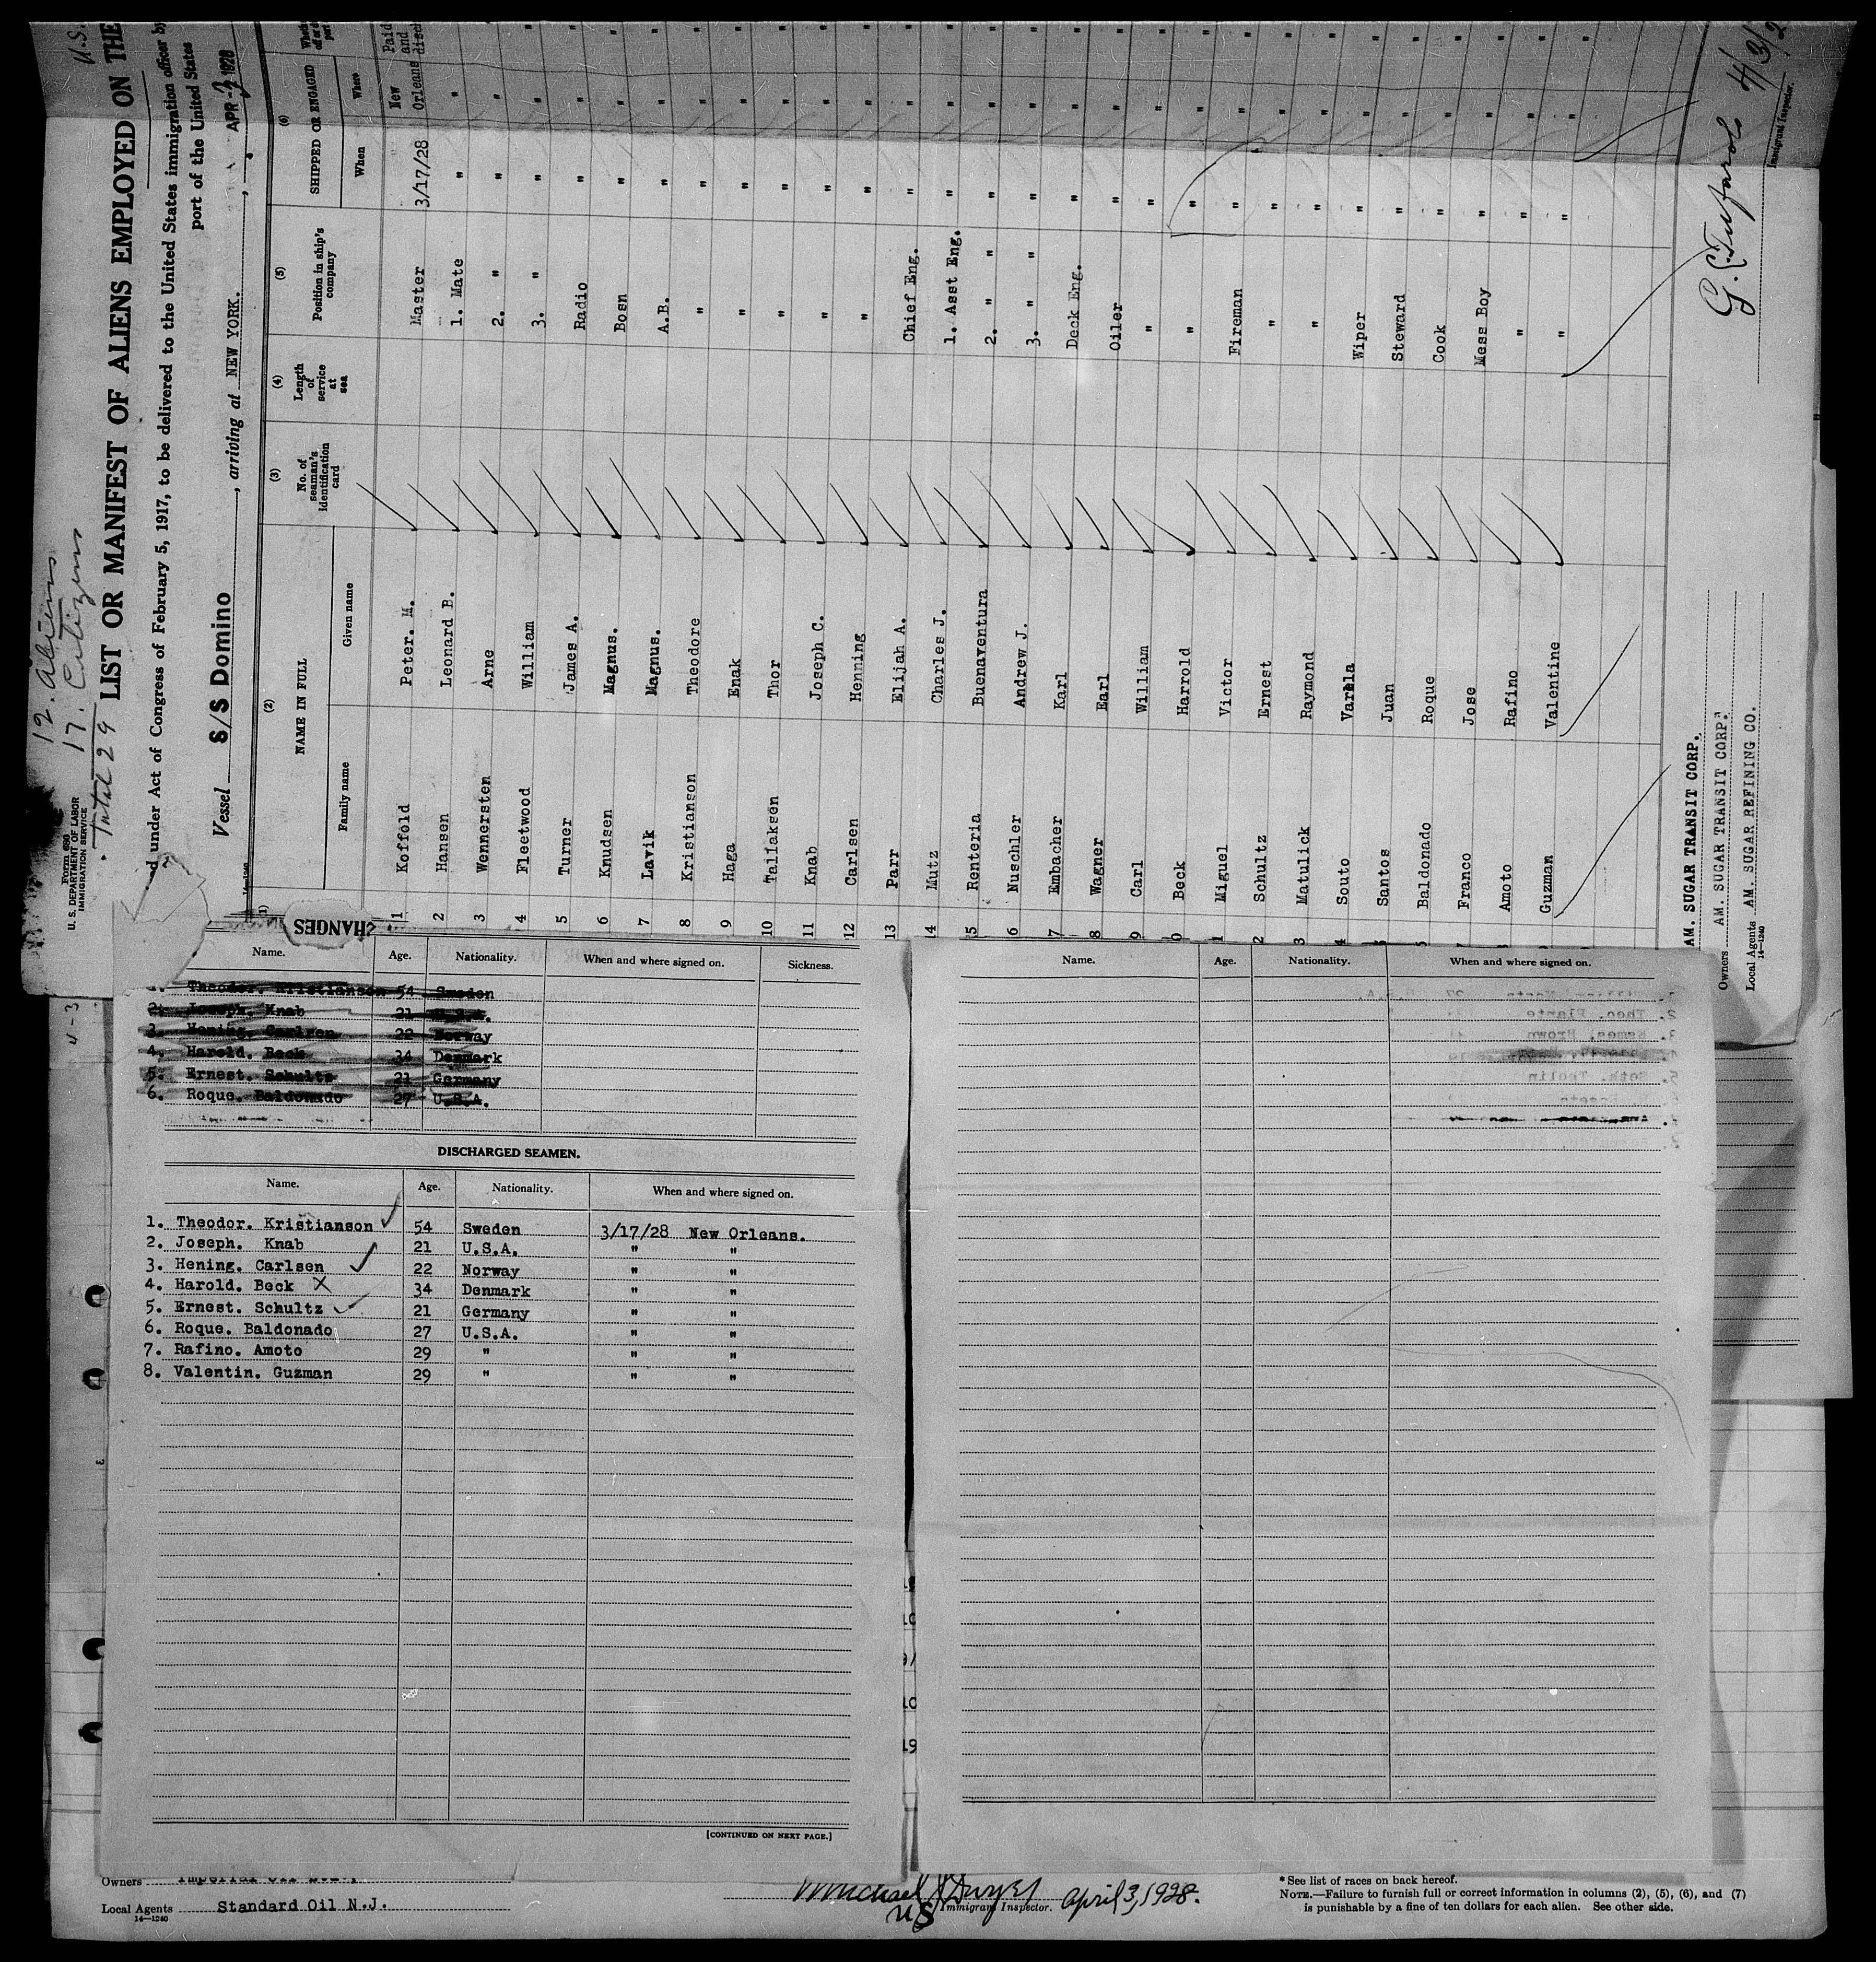 U.S.
12. Aliens
17. Citizens
Total 29
Form 680
U. S. DEPARTMENT OF LABOR
IMMIGRATION SERVICE
LIST OR MANIFEST OF ALIENS EMPLOYED ON THE
under Act of Congress of February 5, 1917, to be delivered to the United States immigration officer by
port of the United States
Vessel S/S Domino, arriving at NEW YORK., APR -3 1928
14-1240
(2) (3) (4) (5) (6)
NAME IN FULL
Family name Given name
No. of seaman's identification card
Length of service at sea
Position in ship's company
SHIPPED OR ENGAGED
When Where
1 Koffold Peter. M. Master 3/17/28 New Orleans Paid and disch
2 Hansen Leonard B. 1. Mate " "
3 Wennersten Arne 2. " " "
4 Fleetwood William 3. " " "
5 Turner James A. Radio " "
6 Knudsen Magnus. Bosn " "
7 Lavik Magnus. A.B. " "
8 Kristianson Theodore " " "
9 Haga Enak " " "
10 Tallaksen Thor " " "
11 Knab Joseph C. " " "
12 Carlsen Henning " " "
13 Parr Elijah A. Chief Eng. " "
14 Mutz Charles J. 1. Asst Eng. " "
15 Renteria Buenaventura 2. " " " "
6 Nuschler Andrew J. 3. " " " "
7 Embacher Karl Deck Eng. " "
8 Wagner Earl Oiler " "
9 Carl William " " "
0 Beck Harrold " " "
1 Miguel Victor Fireman " "
2 Schultz Ernest " " "
3 Matulick Raymond " " "
4 Souto Varela Wiper " "
5 Santos Juan Steward " "
Baldonado Roque Cook " "
Franco Jose Mess Boy " "
Amoto Rafino " " "
Guzman Valentine " " "
AM. SUGAR TRANSIT CORP.
Owners AM. SUGAR TRANSIT CORP.
Local Agents AM. SUGAR REFINING CO.
14-1240
4/3/2
Immigrant Inspector.
CHANGES
Name. Age. Nationality. When and where signed on. Sickness.
1. Theodor. Kristianson 54 Sweden
2. Joseph. Knab 21 U.S.A.
3. Hening. Carlsen 22 Norway
4. Harold. Beck 34 Denmark
5. Ernest. Schultz 21 Germany
6. Roque. Baldonado 27 U.S.A.
DISCHARGED SEAMEN.
Name. Age. Nationality. When and where signed on.
1. Theodor. Kristianson 54 Sweden 3/17/28 New Orleans.
2. Joseph. Knab 21 U.S.A. " "
3. Hening. Carlsen 22 Norway " "
4. Harold. Beck X 34 Denmark " "
5. Ernest. Schultz 21 Germany " "
6. Roque. Baldonado 27 U.S.A. " "
7. Rafino. Amoto 29 " " "
8. Valentin. Guzman 29 " " "
[CONTINUED ON NEXT PAGE.]
Name. Age. Nationality. When and where signed on.
2. Theo. Plante
3. Esmes. Brown
Owners Imperial Oil
Local Agents Standard Oil N.J.
14-1240
Michael J Dwyer April 3, 1928.
US Immigrant Inspector.
* See list of races on back hereof.
NOTE.—Failure to furnish full or correct information in columns (2), (5), (6), and (7)
is punishable by a fine of ten dollars for each alien. See other side.